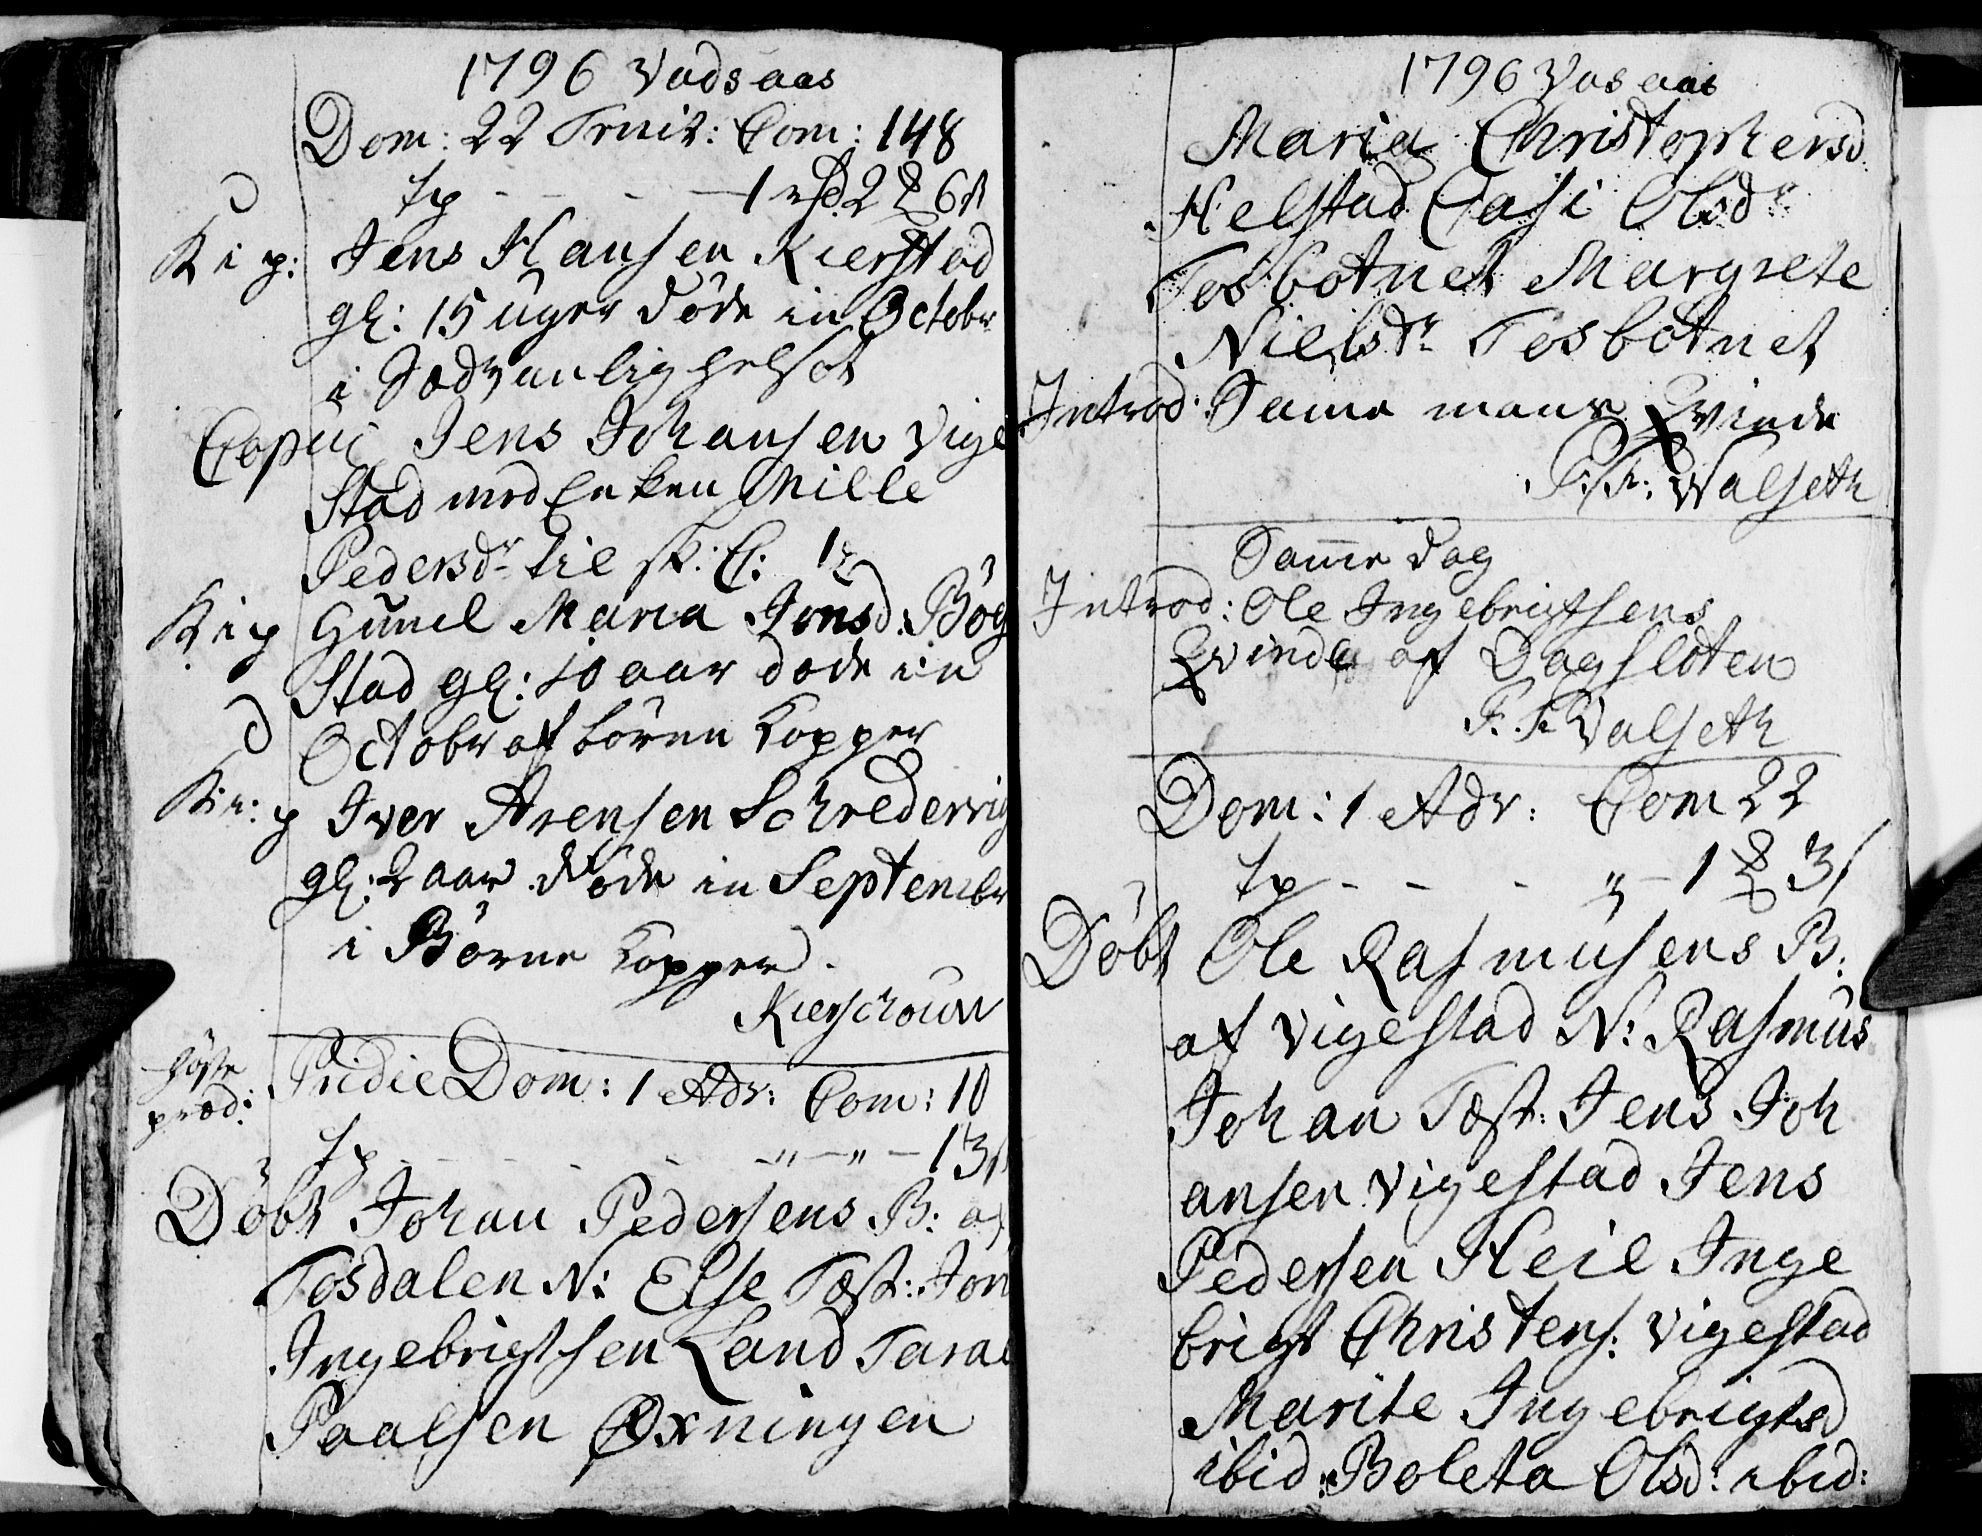 1796 Vadsaas
Dom: 22 Trinit: Com: 148
Tp - - - - 1 rd 2 6 s
K i p: Jens Hansen Kierstad
gl: 15 uger døde in Octobr
i Sædvanlig helsot
Copul Jens Johansen Vige
stad med Enken Mille
Pedersdr til
K i p Gunel Maria Jonsd: Bøg
stad gl: 10 aar døde in
Octobr af børne kopper
K: i: p Iver Arensen Schredervig
gl: 2 aar døde in Septembr
i Børne kopper
Kierschouw
høste
præd: Pridie Dom: 1 Adv: Com: 10
Tp - - - - „ - „ - 13 s
Døbt Johan Pedersens B: af
Tosdalen N: Else Test: Jon
Ingebrigtsen Land Taral
Paalsen Øxningen
1796 Vosaas
Maria Christophersd
Helstad Casi Olsdr
Tosbotnet Margrete
Nielsdr Tosbotnet
Introd: Samme mans Qvinde
F: F: Walseth
Samme Dag
Introd: Ole Ingebrigtsens
Qvinde af Dagsloten
F. F. Valseth
Dom: 1 Adv: Com 22
Tp - - - „ - 1 3 s
Døbt Ole Rasmusens B:
af Vigestad N: Rasmus
Johan Test: Jens Joh
ansen Vigestad Jens
Pedersen Heil Inge
brigt Christens: Vigestad
Marite Ingebrigtsd
ibid: Boleta Olsd: ibid: